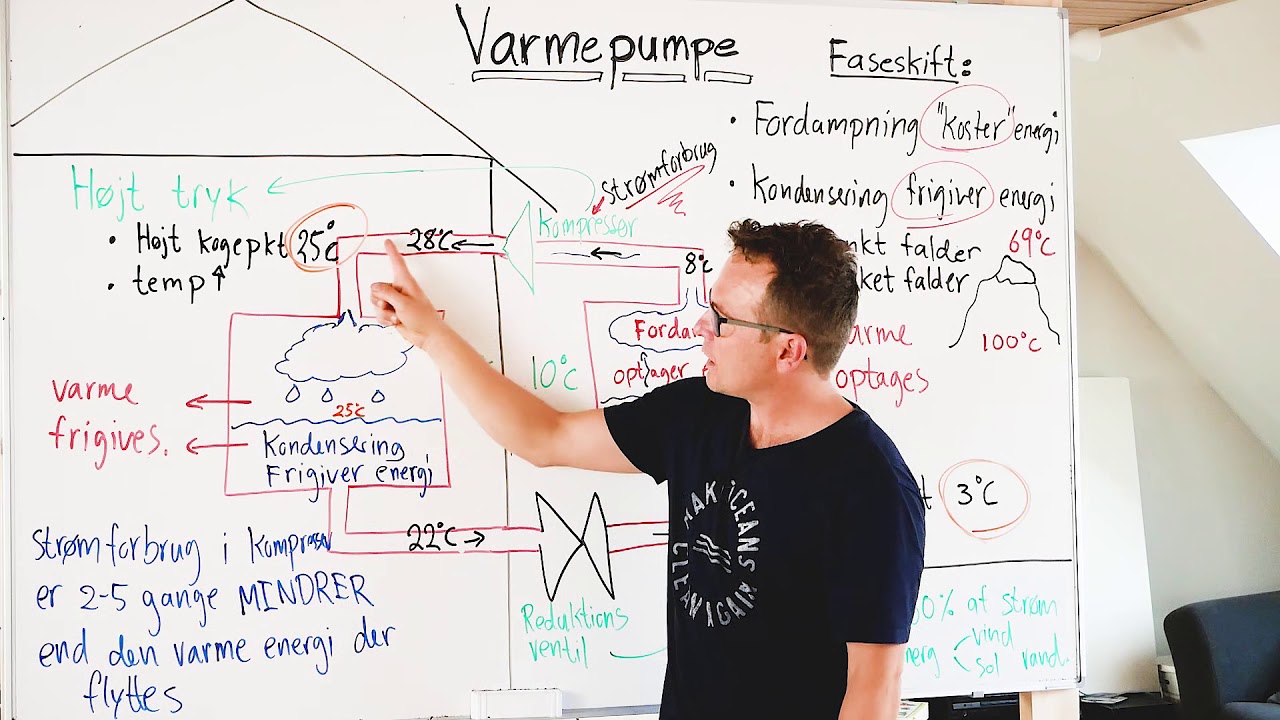 Varmepumpe
Faseskift:
• Fordampning "koster" energi
• Kondensering frigiver energi
falder
falder
69°C
100°C
strømforbrug
Kompressor
Højt tryk
• Højt kogepkt 25°C
• temp↑
28°C ←
←
8°C
10°C
optager
optages
varme
frigives.
25°C
Kondensering
Frigiver energi
22°C →
3°C
Reduktions
ventil
strømforbrug i kompressor
er 2-5 gange MINDRER
end den varme energi der
flyttes
% af strøm
vind
sol vand.
MAKE OCEANS
CLEAN AGAIN